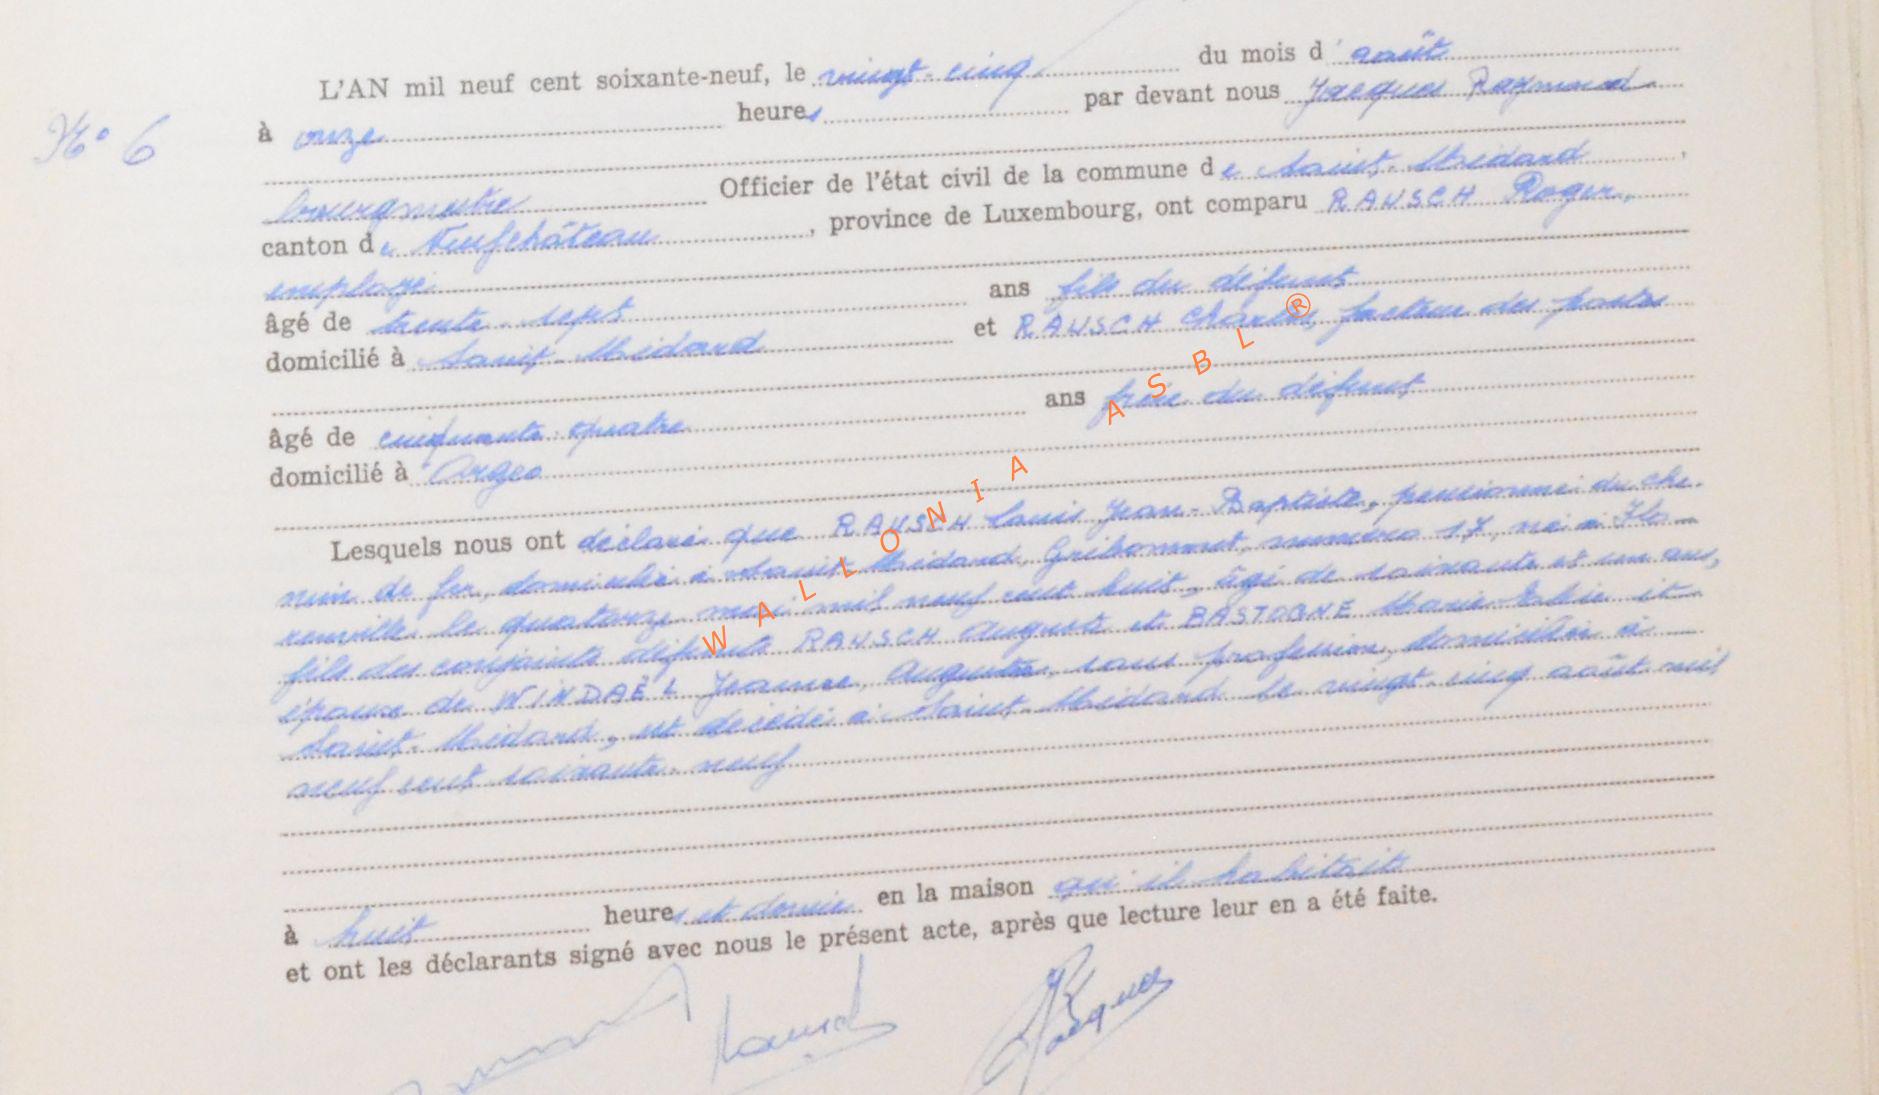 N° 6
L'AN mil neuf cent soixante-neuf, le vingt-cinq du mois d'août
à onze heures par devant nous Jacques Raymond
bourgmestre Officier de l'état civil de la commune de Saint-Médard,
canton de Neufchâteau, province de Luxembourg, ont comparu RAUSCH Roger,
employé
âgé de trente-sept ans fils du défunt
domicilié à Saint-Médard et RAUSCH Charles, facteur des postes
âgé de cinquante-quatre ans frère du défunt
domicilié à Orgeo
Lesquels nous ont déclaré que RAUSCH Louis Jean-Baptiste, pensionné du che-
min de fer, domicilié à Saint-Médard, Gribomont, numéro 17, né à Flo-
renville le quatorze mai mil neuf cent huit, âgé de soixante et un ans,
fils des conjoints défunts RAUSCH Auguste et BASTOGNE Marie et
époux de WINDAËL Jeanne, Augustine, sans profession, domiciliée à
Saint-Médard, est décédé à Saint-Médard le vingt-cinq août mil
neuf cent soixante-neuf
à huit heures et demie en la maison qu'il habitait
et ont les déclarants signé avec nous le présent acte, après que lecture leur en a été faite.
Rausch
Jacques
WALLONIA ASBL ®